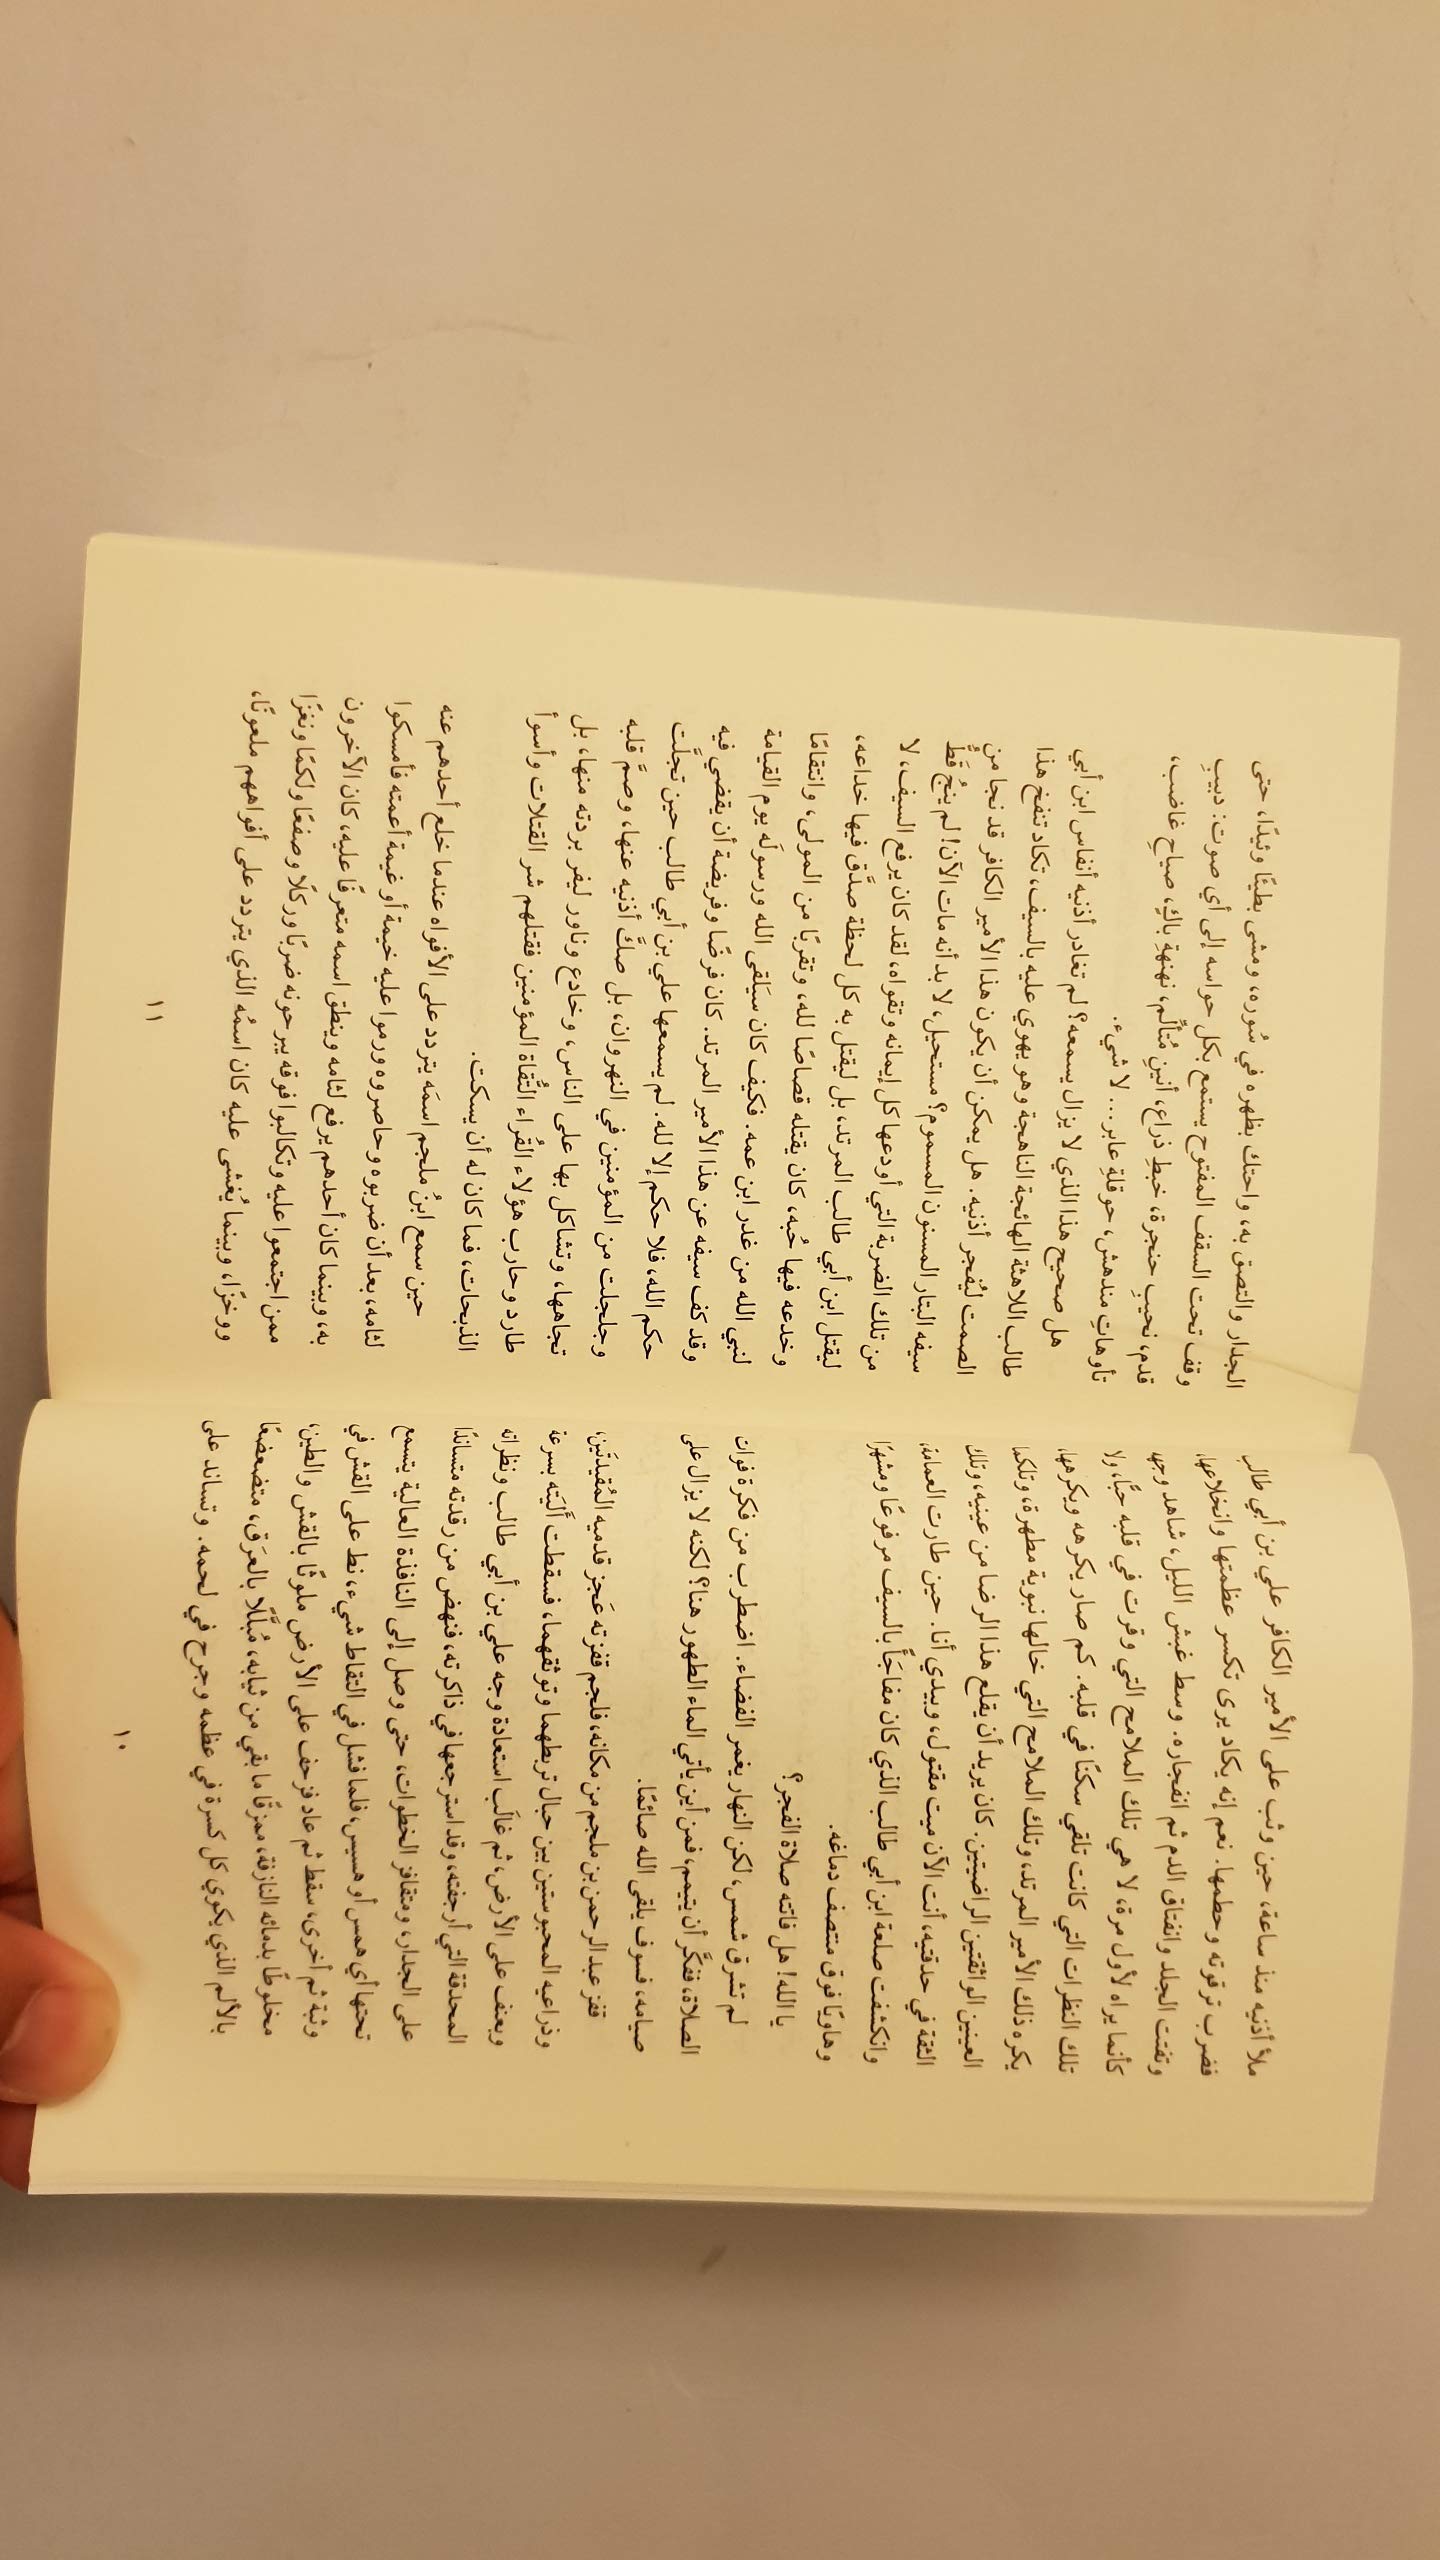 ملأ أذنيه منذ ساعة، حين وثب على الأمير الكافر علي بن أبي طالب
فضرب ترقوته وحطمها. نعم إنه يكاد يرى تكسر عظمتها وانخلاعها،
وتفتت الجلد وانفتاق الدم ثم انفجاره. وسط غبش الليل، شاهد وجهه
كأنما يراه لأول مرة، لا هي تلك الملامح التي وقرت في قلبه حبًا، ولا
تلك النظرات التي كانت تلقي سكنًا في قلبه. كم صار يكرهه ويكرهها،
يكره ذلك الأمير المرتد، وتلك الملامح التي خالها نبوية مطهرة، وتلكما
العينين الواثقتين الراضيتين. كان يريد أن يقلع هذا الرضا من عينيه، وتلك
الثقة في حدقتيه، أنت الآن ميت مقتول، وبيدي أنا. حين طارت العمامة،
وانكشفت صلعة ابن أبي طالب الذي كان مفاجَأً بالسيف مرفوعًا ومشهرًا
وهاويًا فوق منتصف دماغه.
يا الله! هل فاتته صلاة الفجر؟
لم تشرق شمس، لكن النهار يغمر الفضاء. اضطرب من فكرة فوات
الصلاة، ففكَّر أن يتيمم، فمن أين يأتي الماء الطهور هنا؟ لكنه لا يزال على
صيامه، فسوف يلقى الله صائمًا.
قفز عبد الرحمن بن ملجم من مكانه، فلجم قفزته عَجز قدميه المُقيدتَين،
وذراعيه المحبوستين بين حبال تربطهما وتوثقهما، فسقطت أَليَته بسرعة
وبعنف على الأرض، ثم غالَب استعادة وجه علي بن أبي طالب ونظراته
المحدقة التي أرجفته، وقد استرجعها في ذاكرته، فنهض من رقدته متساندًا
على الجدار، ومتقافز الخطوات، حتى وصل إلى النافذة العالية يتسمع
تحتها أي همس أو هسيس، فلما فشل في التقاط شيء، نط على القش في
وثبة ثم أخرى، سقط ثم عاد فزحف على الأرض ملوثًا بالقش والطين،
مخلوطًا بدمائه النازفة، ممزقًا ما بقي من ثيابه، مُبلَّلًا بالعرَق، متضعضعًا
بالألم الذي يكوي كل كسرة في عظمه وجرح في لحمه. وتساند على
١٠
الجدار والتصق به، واحتك بظهره في سُوره، ومشى بطيئًا وئيدًا، حتى
وقف تحت السقف المفتوح يستمع بكل حواسه إلى أي صوت: دبيبِ
قدم، نحيبِ حنجرة، خبطِ ذراع، أنينِ مُتألم، نهنهةِ باكٍ، صياحِ غاضب،
تأوهاتِ مندهش، حوقلةِ عابر... لا شيء.
هل صحيح هذا الذي لا يزال يسمعه؟ لم تغادر أذنيه أنفاس ابن أبي
طالب اللاهثة الهائجة الناهجة وهو يهوي عليه بالسيف، تكاد تنفخ هذا
الصمت لتُفجر أذنيه. هل يمكن أن يكون هذا الأمير الكافر قد نجا من
سيفه البتار المسنون المسموم؟ مستحيل، لا بد أنه مات الآن! لم ينجُ قَطُّ
من تلك الضربة التي أودعها كل إيمانه وتقواه، لقد كان يرفع السيف، لا
ليقتل ابن أبي طالب المرتد، بل ليقتل به كل لحظة صدَّق فيها خداعه،
وخدعه فيها حُبه، كان يقتله قصاصًا لله، وتقربًا من المولى، وانتقامًا
لنبي الله من غدر ابن عمه. فكيف كان سَيَلقى الله ورسولَه يوم القيامة
وقد كف سيفه عن هذا الأمير المرتد. كان فرضًا وفريضة أن يقضي فيه
حكم الله، فلا حكم إلا لله. لم يسمعها علي بن أبي طالب حين تجلَّت
وجلجلت من المؤمنين في النهروان، بل صكَّ أذنيه عنها، وصمَّ قلبه
تجاهها، وتشاكل بها على الناس، وخادع وناور ليفر بردته منها، بل
طارد وحارب هؤلاء القُراء التُّقاة المؤمنين فقتلهم شر القتلات وأسوأ
الذبحات، فما كان له أن يسكت.
حين سمع ابنُ ملجم اسمَه يتردد على الأفواه عندما خلع أحدهم عنه
لثامه، بعد أن ضربوه وحاصروه ورموا عليه خيمة أو غيمة أعمته فأمسكوا
به، وبينما كان أحدهم يرفع لثامه وينطق اسمه متعرفًا عليه، كان الآخرون
ممن اجتمعوا عليه وتكالبوا فوقه يبرحونه ضربًا وركلًا وصفعًا ولكمًا ونغزًا
ووخزًا، وبينما يُغشى عليه كان اسمُه الذي يتردد على أفواههم ملعونًا،
١١